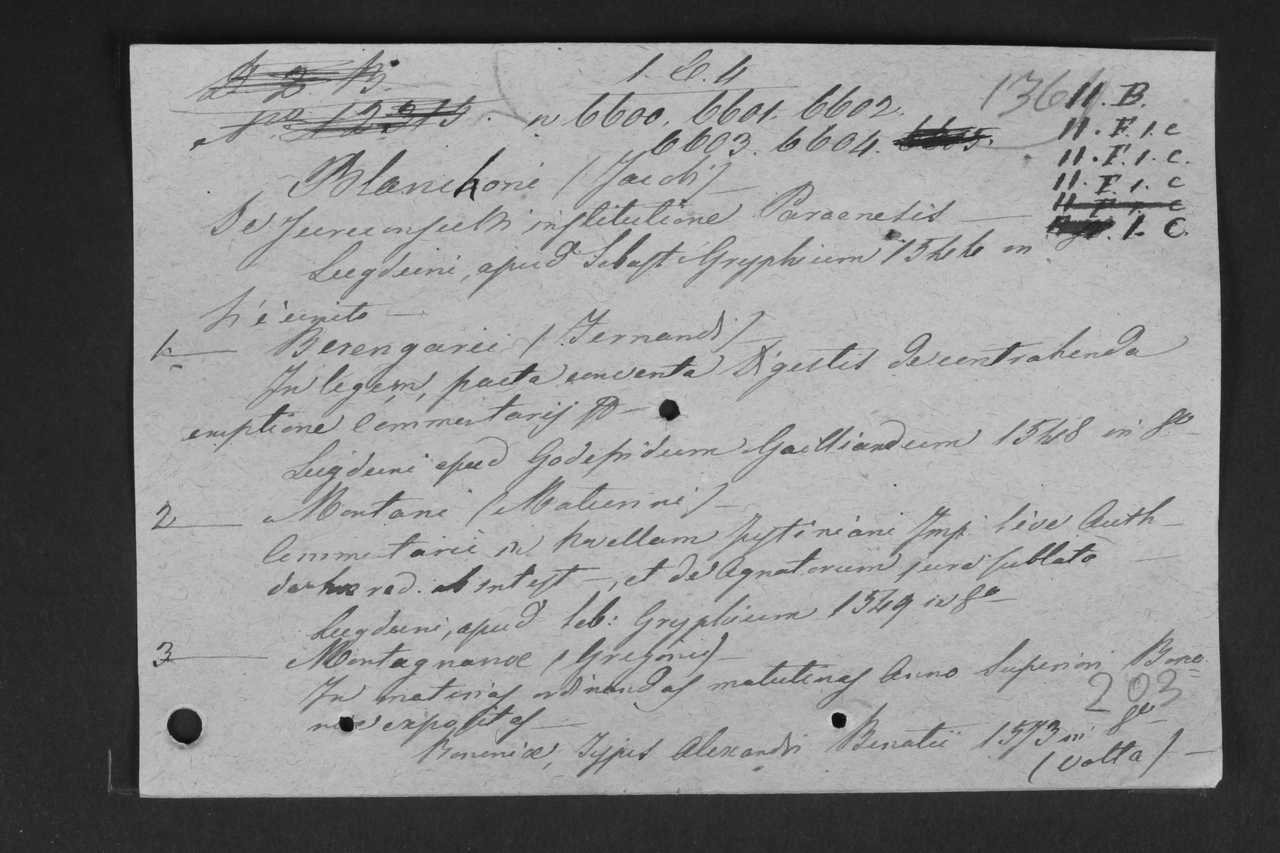 1. C. 4
136
n 6600. 6601. 6602.
6603. 6604.
11. B.
11. F. 1. c
11. F. 1. c.
11. F. 1. c
1. C.
Blanchoni (Jacobi)
De Jureconsulti institutione Paraenesis —
Lugduni, apud Sebast: Gryphium 1544 in 8º
Vi è unito —
1 — Berengarii (Fernandi) —
In legem, pacta conventa Digestis de contrahenda
emptione Commentarij —
Lugduni apud Godefridum 1548 in 8º
2 — Montani (Maturini) —
Commentarii in Novellam Justiniani Imp. sive Auth —
ab intest —, et de Agnatorum jure sublato —
Lugduni, apud Seb: Gryphium 1549 in 8º —
3 — Montagnanæ (Gregorii) —
In materias ordinandas matutinas Anno Superiori Bono
niæ expositas —
203
Bononiæ, Typis Alexandri Benatii 1573 in 8º
(volta) —